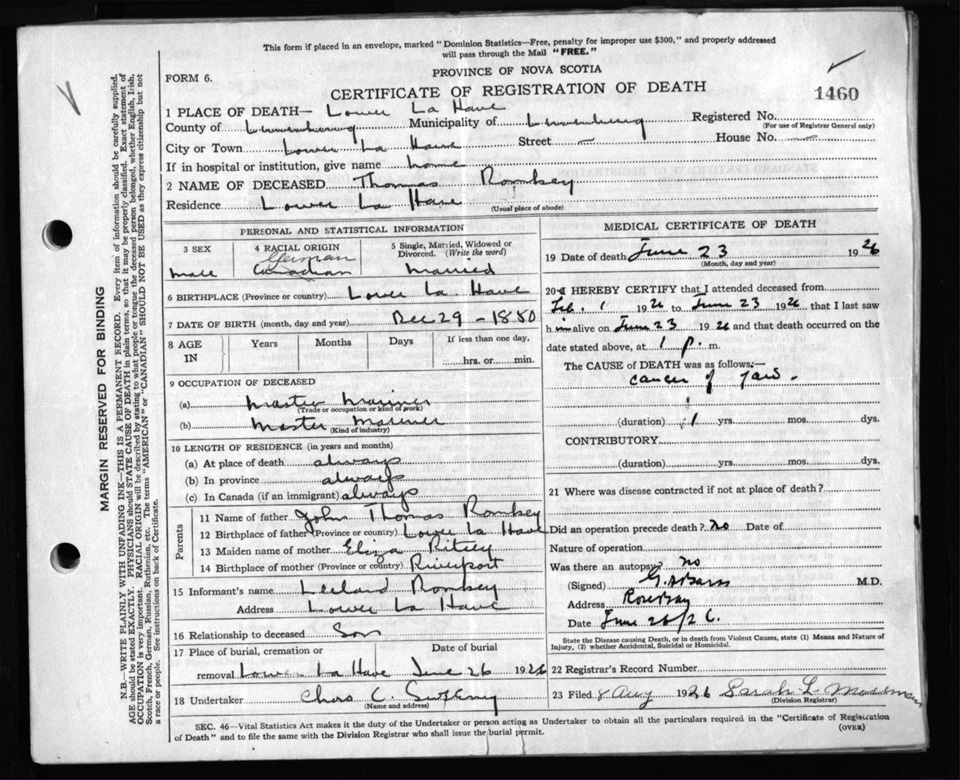 This form if placed in an envelope, marked "Dominion Statistics—Free, penalty for improper use $300," and properly addressed
will pass through the Mail "FREE."
FORM 6.
PROVINCE OF NOVA SCOTIA
CERTIFICATE OF REGISTRATION OF DEATH
1460
1 PLACE OF DEATH— Lower La Have
County of Lunenburg Municipality of Lunenburg Registered No.
(For use of Registrar General only)
City or Town Lower La Have Street — House No. —
If in hospital or institution, give name home
2 NAME OF DECEASED Thomas Romkey
Residence Lower La Have
(Usual place of abode)
PERSONAL AND STATISTICAL INFORMATION
3 SEX
male
4 RACIAL ORIGIN
German
Canadian
5 Single, Married, Widowed or
Divorced. (Write the word)
Married
6 BIRTHPLACE (Province or country) Lower La Have
7 DATE OF BIRTH (month, day and year) Dec 29 - 1880
8 AGE
IN
Years Months Days If less than one day,
hrs. or min.
9 OCCUPATION OF DECEASED
(a) Master Mariner
(Trade or occupation or kind of work)
(b) Master Mariner
(Kind of industry)
10 LENGTH OF RESIDENCE (in years and months)
(a) At place of death always
(b) In province always
(c) In Canada (if an immigrant) always
Parents
11 Name of father John Thomas Romkey
12 Birthplace of father (Province or country) Lower La Have
13 Maiden name of mother Eliza Ritcey
14 Birthplace of mother (Province or country) Riverport
15 Informant's name Leeland Romkey
Address Lower La Have
16 Relationship to deceased Son
17 Place of burial, cremation or Date of burial
removal Lower La Have June 26 1926
18 Undertaker Chas C.
(Name and address)
MEDICAL CERTIFICATE OF DEATH
19 Date of death June 23 1926
(Month, day and year)
20 I HEREBY CERTIFY that I attended deceased from
Feb. 1 1926 to June 23 1926 that I last saw
h im alive on June 23 1926 and that death occurred on the
date stated above, at 1 p. m.
The CAUSE OF DEATH was as follows:—
cancer of jaw.
(duration) 1 yrs. mos. dys.
CONTRIBUTORY
(duration) yrs. mos. dys.
21 Where was disease contracted if not at place of death?
Did an operation precede death? no Date of
Nature of operation
Was there an autopsy? no
(Signed) M.D.
Address Rose Bay
Date June 26/26.
State the Disease causing Death, or in death from Violent Causes, state (1) Means and Nature of
Injury, (2) whether Accidental, Suicidal or Homicidal.
22 Registrar's Record Number
23 Filed 8 Aug 1926 Sarah L Mossman
(Division Registrar)
SEC. 46—Vital Statistics Act makes it the duty of the Undertaker or person acting as Undertaker to obtain all the particulars required in the "Certificate of Registration
of Death" and to file the same with the Division Registrar who shall issue the burial permit.
(OVER)
MARGIN RESERVED FOR BINDING
N.B.—WRITE PLAINLY WITH UNFADING INK—THIS IS A PERMANENT RECORD. Every item of information should be carefully supplied.
AGE should be stated EXACTLY. PHYSICIANS should STATE CAUSE OF DEATH in plain terms, so that it may be properly classified. Exact statement of
OCCUPATION is very important. RACIAL ORIGIN will be described by stating to what people or tongue the deceased person belonged, whether English, Irish,
Scotch, French, German, Russian, Ruthenian, etc. The terms "AMERICAN" or "CANADIAN" SHOULD NOT BE USED as they express citizenship but not
a race or people. See instructions on back of Certificate.